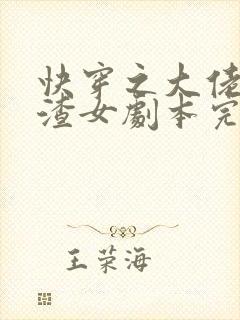 快穿之大佬
渣女剧本完
王荣海